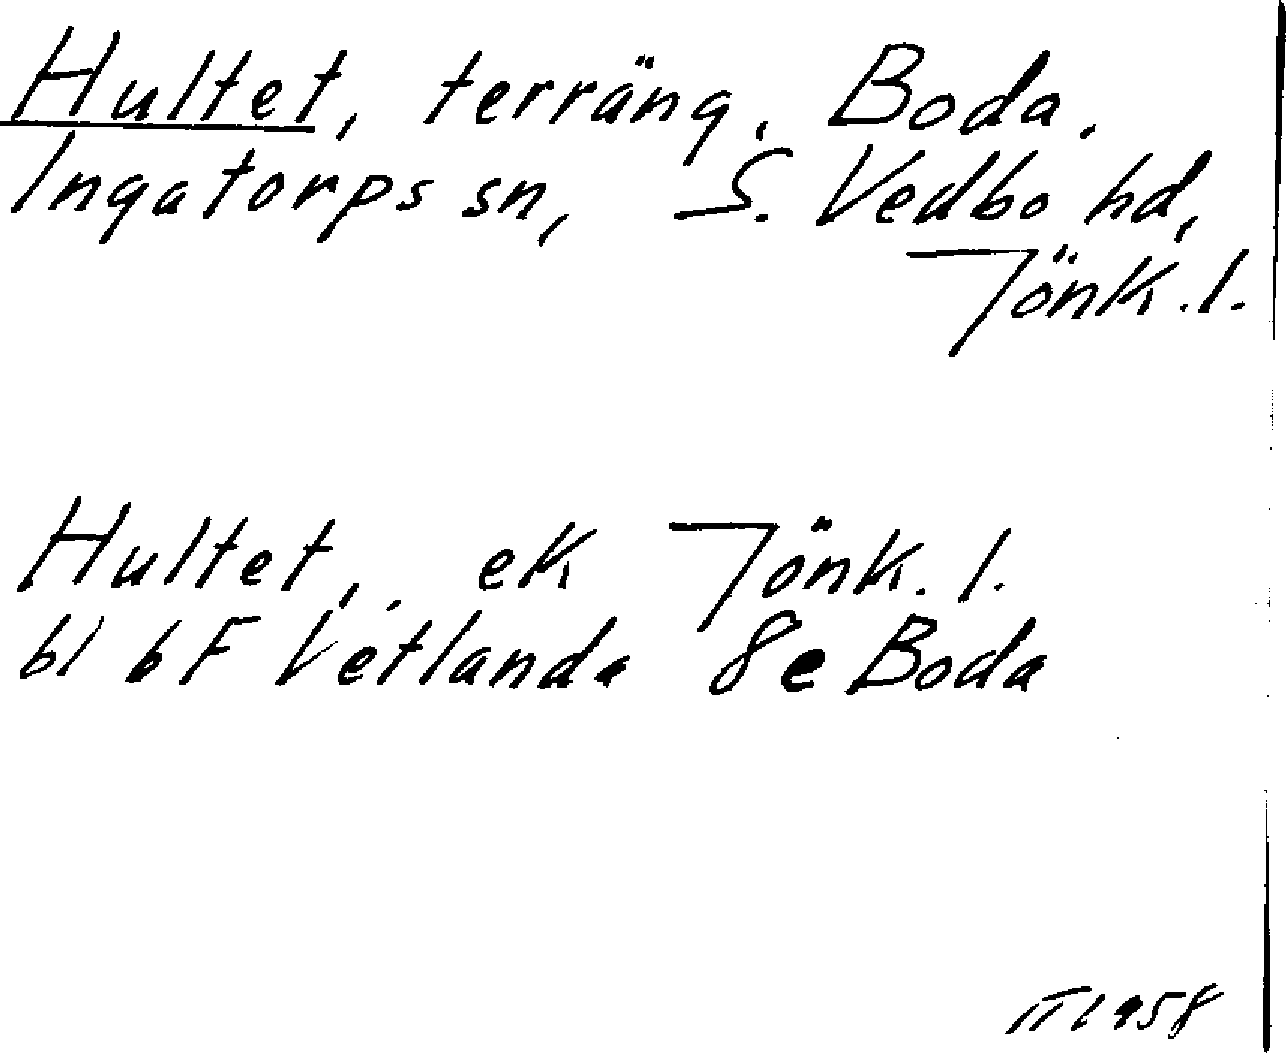 Hultet, terräng, Boda,
Ingatorps sn, S. Vedbo hd,
Jönk. l.
Hultet, ek Jönk. l.
bl 6F Vetlanda 8e Boda
1958